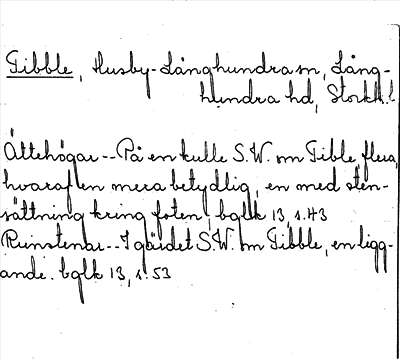 Gibble, Husby-Långhundra sn, Lång-
hundra hd, Stockh.l.
Ättehögar--På en kulle S.W. om Gibble flera,
hvaraf en mera betydlig, en med sten-
sättning kring foten; bglk 13, s.43
Runstenar--I gärdet S.W. om Gibble, en ligg-
ande. bglk 13, s.53